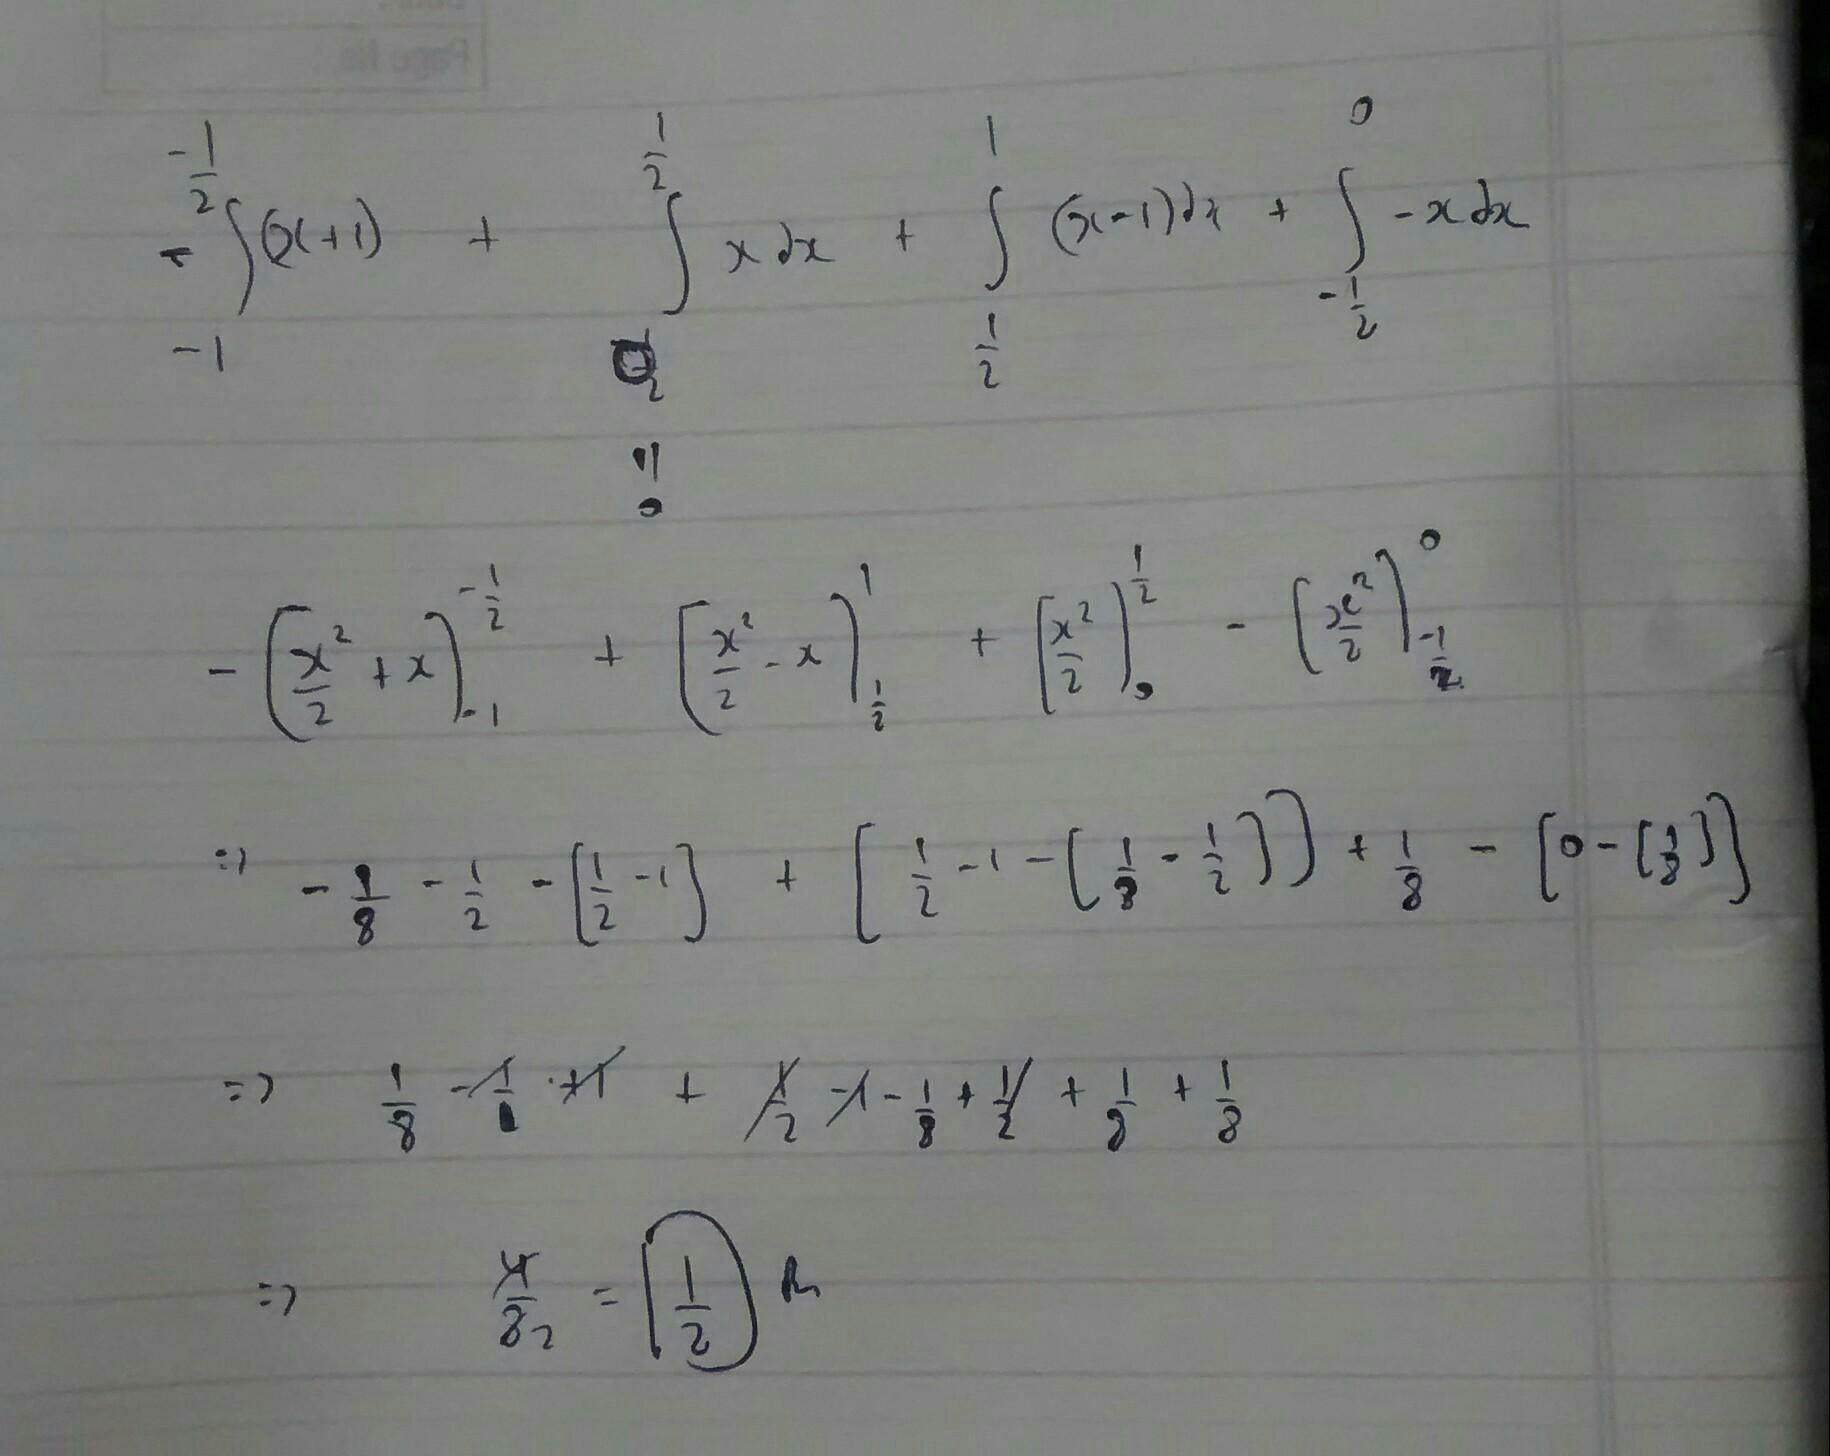 Page No. :
-∫_{-1}^{-1/2} (x+1) + ∫^{1/2} x dx + ∫_{1/2}^{1} (x-1)dx + ∫_{-1/2}^{0} -x dx
||
0
-[x²/2 + x]_{-1}^{-1/2} + [x²/2 - x]_{1/2}^{1} + [x²/2]_{0}^{1/2} - [x²/2]_{-1/2}^{0}
=> -1/8 - 1/2 - [1/2 - 1] + [1/2 - 1 - [1/8 - 1/2]] + 1/8 - [0 - [1/8]]
=> 1/8 - +1 + 1/2 - 1 - 1/8 + 1/2 + 1/8 + 1/8
=> 4/8 2 = 1/2